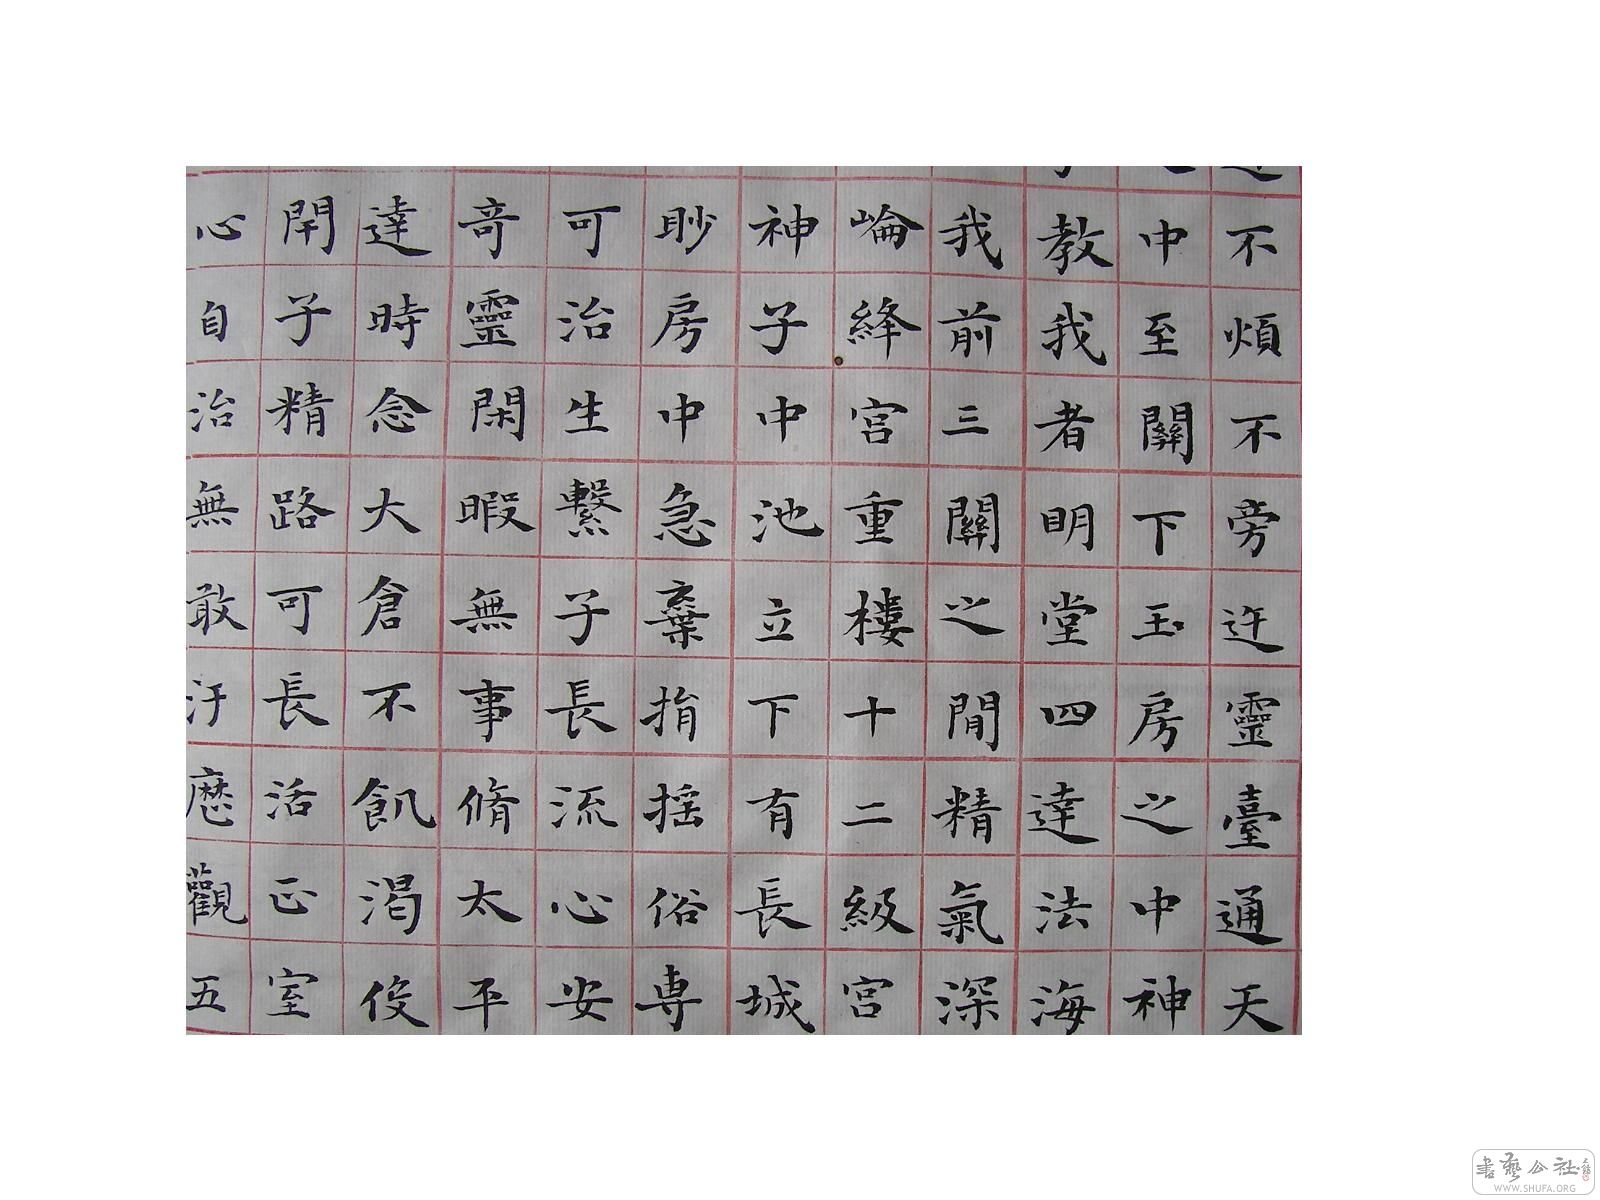 不煩不旁迕靈臺通天
中至關下玉房之中神
教我者明堂四達法海
我前三關之間精氣深
崘絳宮重樓十二級宮
神子中池立下有長城
眇房中急棄捐搖俗専
可治生繫子長流心安
奇靈閑暇無事脩太平
達時念大倉不飢渴伇
開子精路可長活正室
心自治無敢汙歷觀五
書藝公社
WWW.SHUFA.ORG